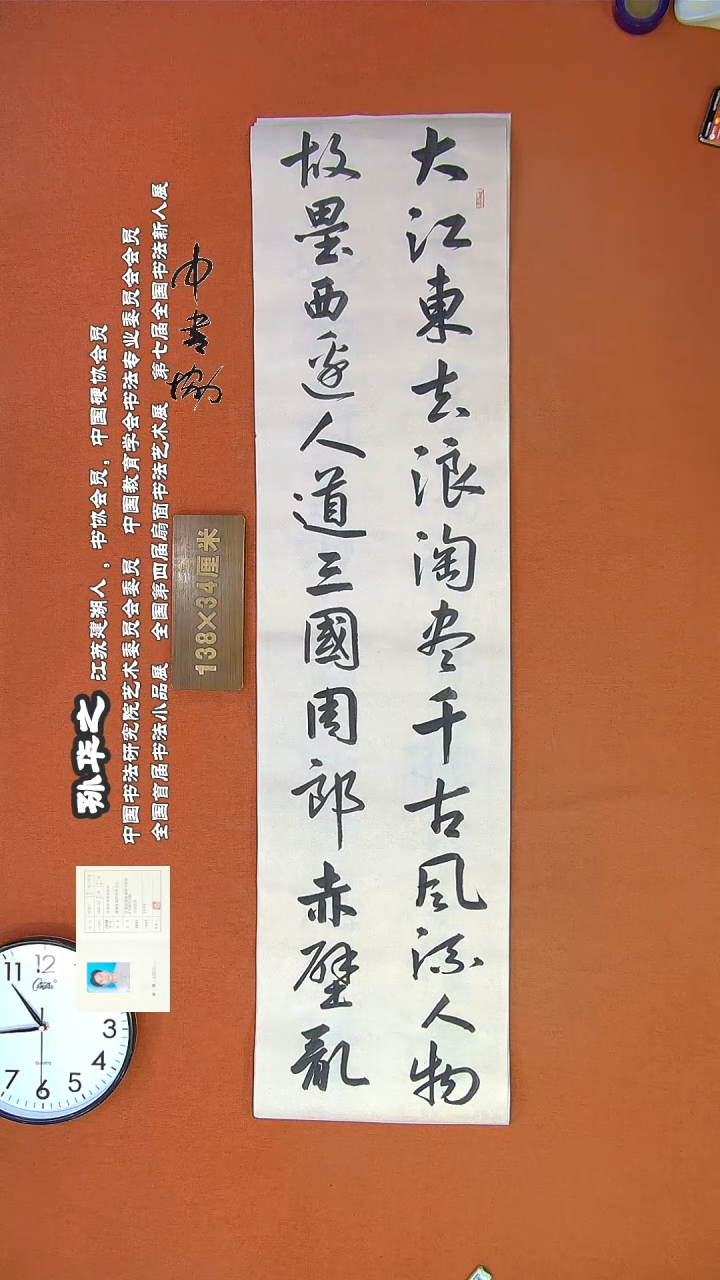 大江東去浪淘尽千古風流人物
故壘西邊人道三國周郎赤壁亂
中書協
孙华文
江苏建湖人，书协会员，中国硬协会员
中国书法研究院艺术委员会委员 中国教育学会书法专业委员会会员
全国首届书法小品展 全国第四届扇面书法艺术展 第七届全国书法新人展
138×34厘米
11 12
3
4
5
6
7
QUARTZ